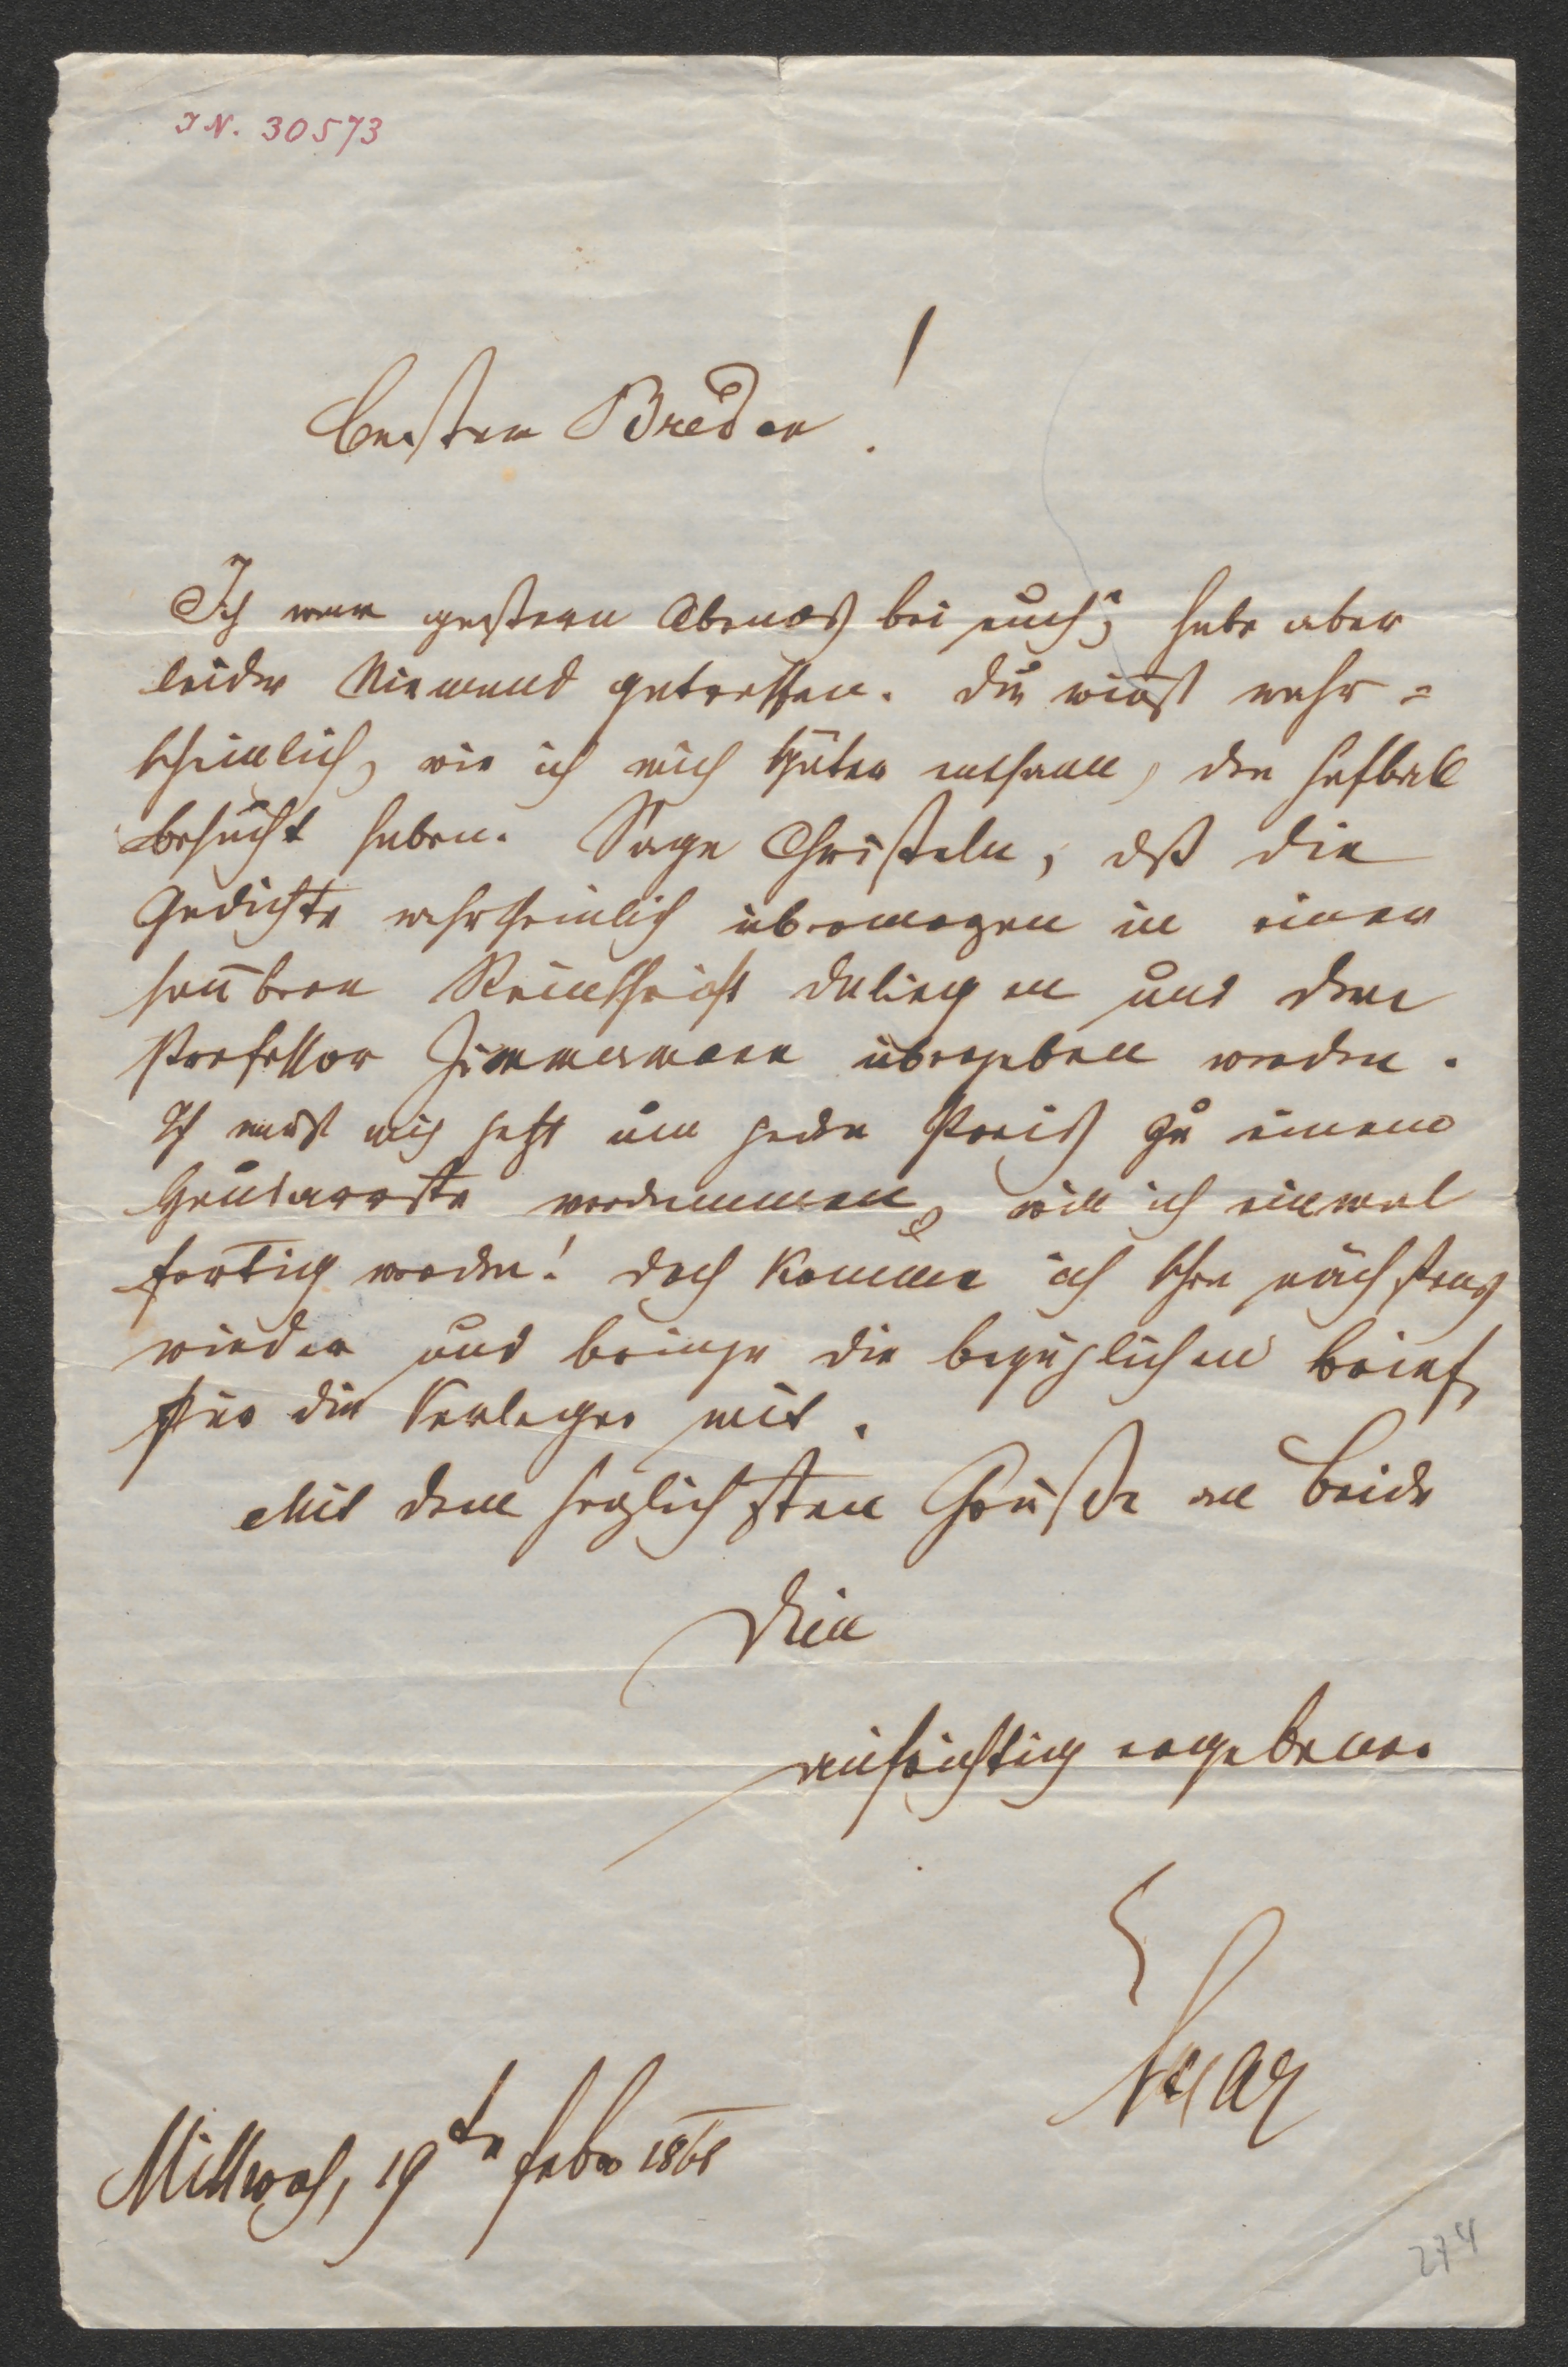 I N. 30573
bester Breden!
Ich war gestern Abends bei euch; habe aber
leider Niemand getroffen. Du wirst wahr=
scheinlich, wie ich mich später entsann, den Hofball
besucht haben. Sage Christeln, dß die
Gedichte wahrscheinlich übermorgen in einer
saubern Reinschrift daliegen und dem
Professor Zimmermann übergeben werden.
Ich muß mich jetzt um jeden Preis zu einem
Hausarreste verdammen, will ich einmal
fertig werden! doch komme ich schon nächstens
wieder und bringe die bezüglichen Briefe
für die Verleger mit.
Mit dem herzlichsten Gruße an beide
Dein
aufrichtig ergebener
Mittwoch, 19te Febr 1868
274